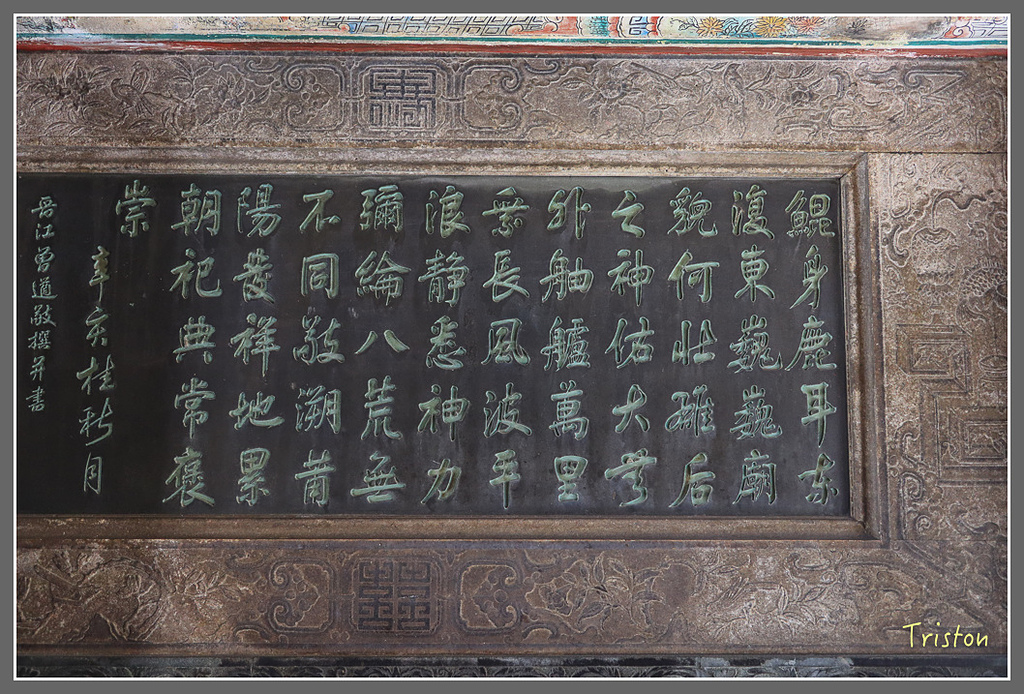 鯤身鹿耳东
復東巍巍廟
貌何壯雄后
之神佑大
外舳艫萬里
乘長風波平
浪靜悉神力
彌綸八荒無
不同敬溯莆
陽發祥地累
朝祀典常褒
崇
辛亥桂秋月
晉江曾遒敬撰并書
Triston